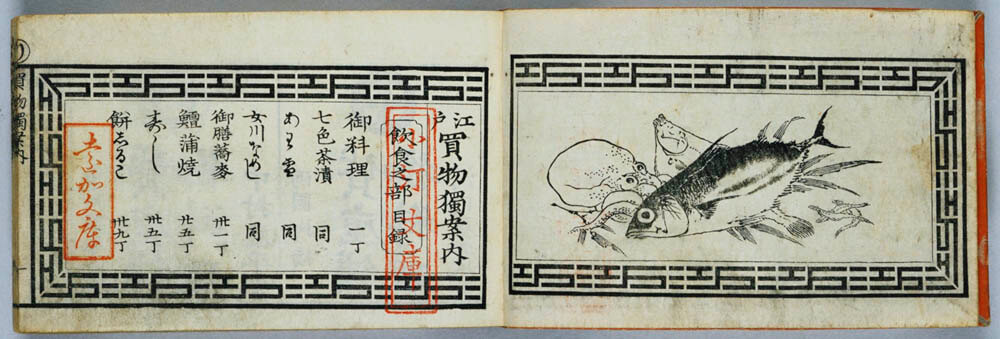 江戸買物獨案内
飲食之部目録
御料理 一丁
七色茶漬 同
あわ雪 同
女川なめし 同
御膳蕎麥 丁
鱣蒲焼 廿五丁
すし 卅五丁
餅しるこ 卅九丁
買物獨案内
小汀文庫
文庫